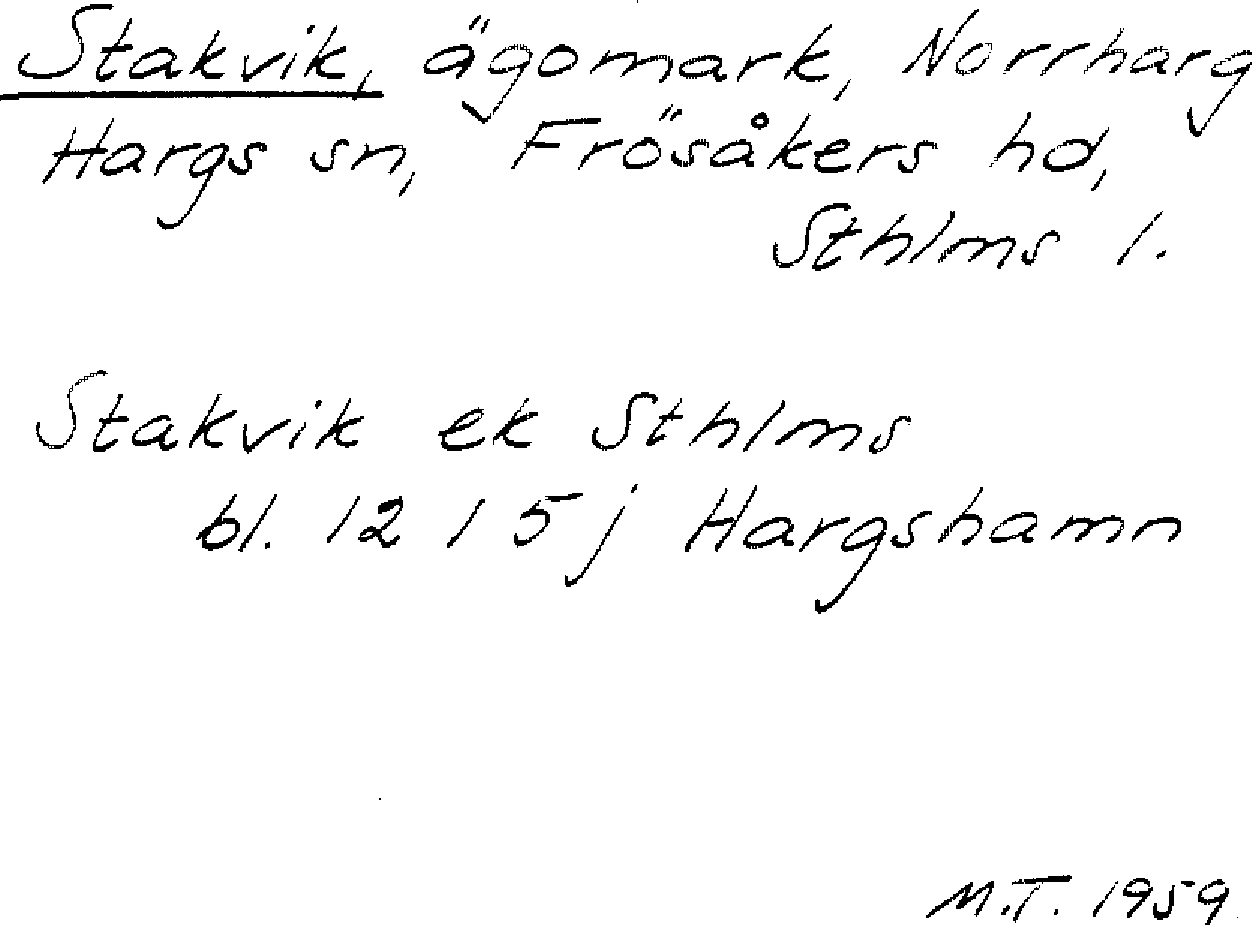 Stakvik, ägomark, Norrharg
Hargs sn, Frösåkers hd,
Sthlms l.
Stakvik ek Sthlms
bl. 12 I 5 j Hargshamn
M.T. 1959